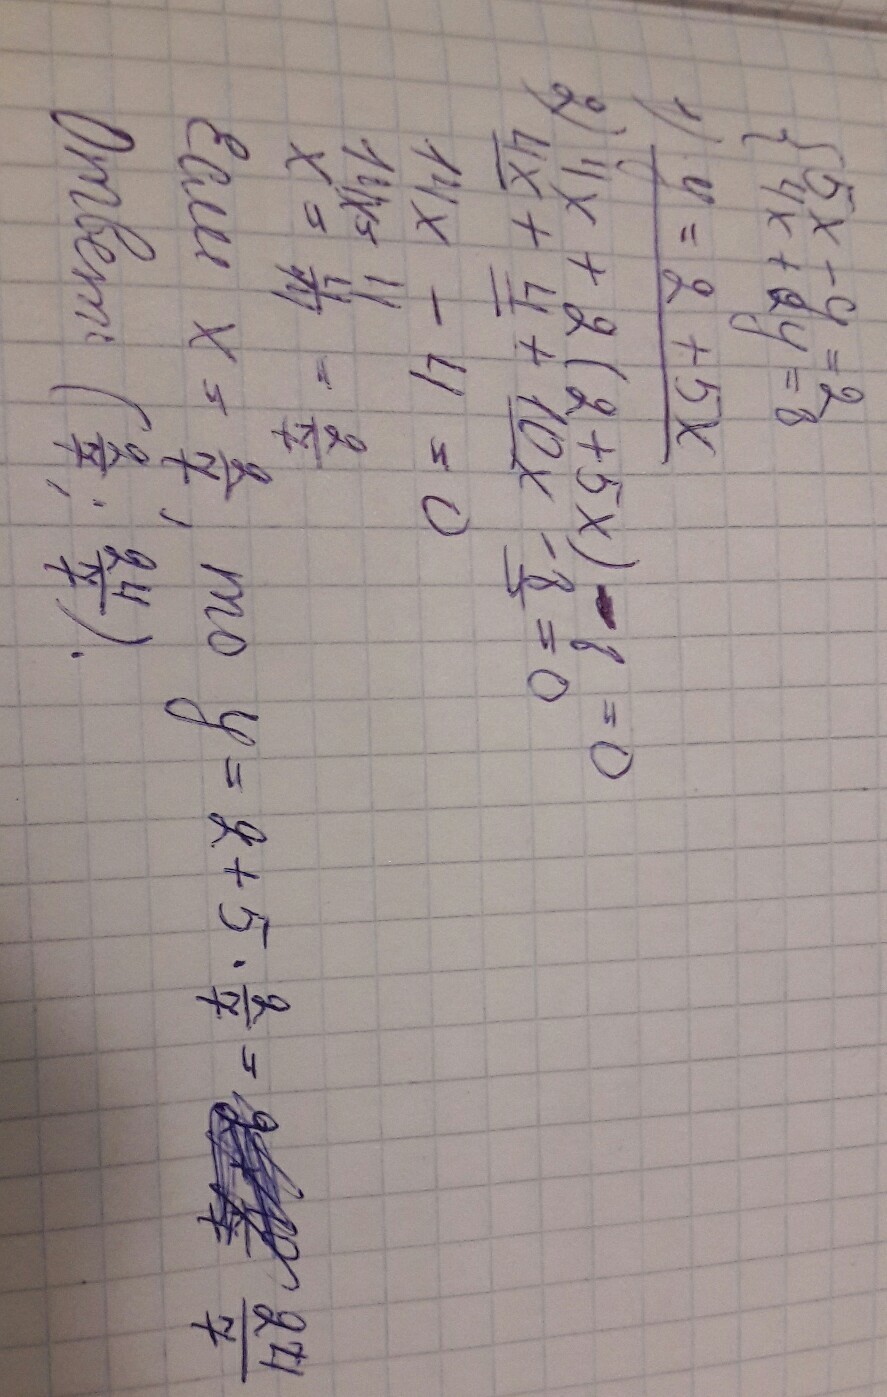 { 5x - y = 2
4x + 2y = 8
1) y = 2 + 5x
2) 4x + 2(2 + 5x) - 8 = 0
4x + 4 + 10x - 8 = 0
14x - 4 = 0
14x = 4
x = 4/14 = 2/7
Если x = 2/7, то y = 2 + 5 · 2/7 = 24/7
Ответ: (2/7; 24/7).